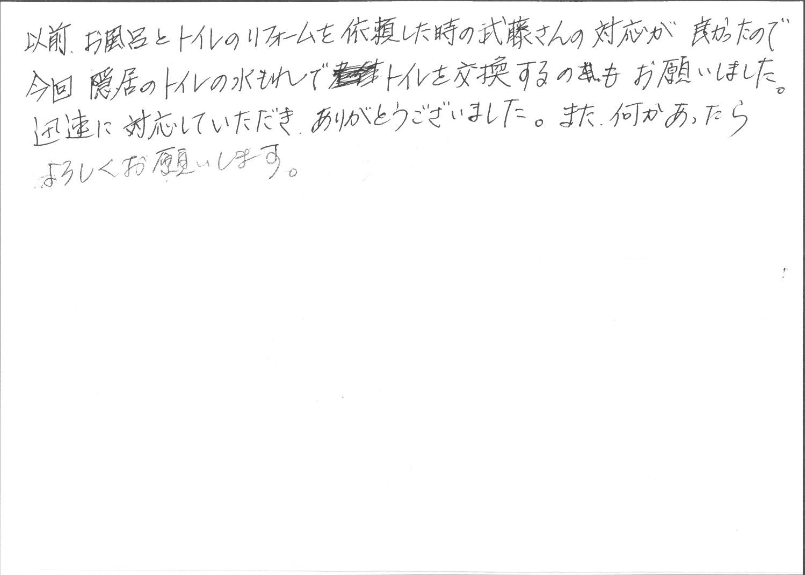 以前、お風呂とトイレのリフォームを依頼した時の武藤さんの対応が良かったので
今回隠居のトイレの水もれでトイレを交換するのもお願いしました。
迅速に対応していただき、ありがとうございました。また、何かあったら
よろしくお願いします。